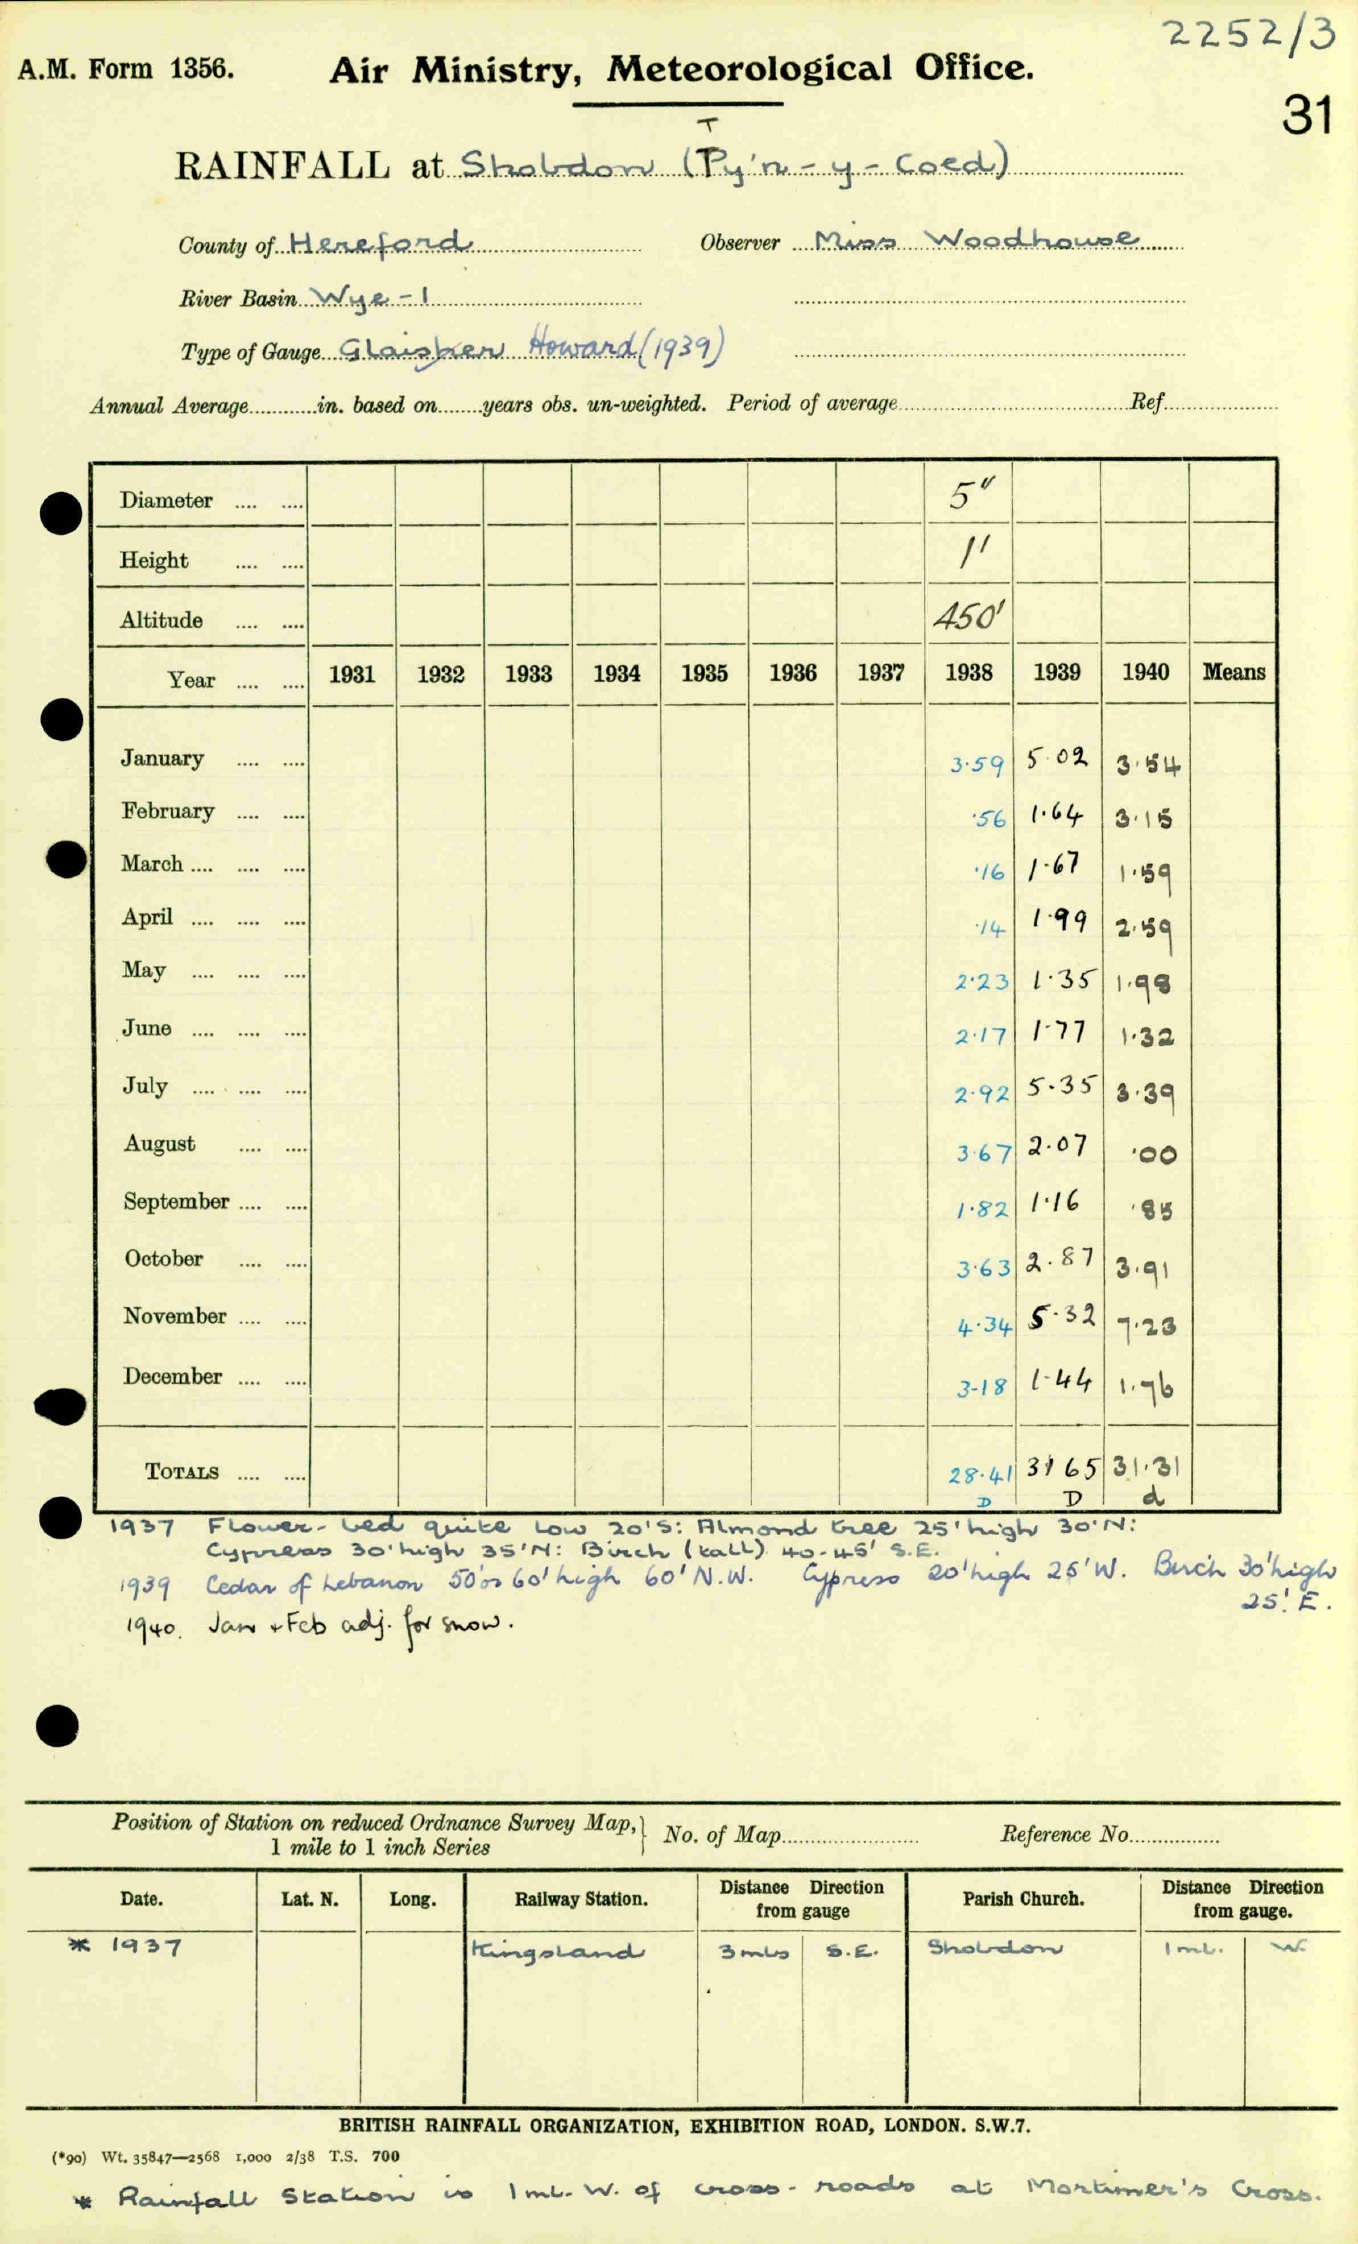 2252/3
A.M. Form 1356. Air Ministry, Meteorological Office.
31
T
RAINFALL at Shobdon (Py'n-y-Coed)
County of Hereford Observer Miss Woodhouse
River Basin Wye-1
Type of Gauge Glaisher Howard (1939)
Annual Average in. based on years obs. un-weighted. Period of average Ref.
Diameter 5"
Height 1'
Altitude 450'
Year 1931 1932 1933 1934 1935 1936 1937 1938 1939 1940 Means
January 3.59 5.02 3.54
February .56 1.64 3.15
March .16 1.67 1.59
April .14 1.99 2.59
May 2.23 1.35 1.98
June 2.17 1.77 1.32
July 2.92 5.35 3.39
August 3.67 2.07 .00
September 1.82 1.16 .85
October 3.63 2.87 3.91
November 4.34 5.32 7.23
December 3.18 1.44 1.76
TOTALS 28.41 31 65 31.31
D D d
1937 Flower-bed quite low 20'S: Almond tree 25'high 30'N:
Cypress 30'high 35'N: Birch (tall) 40-45' S.E.
1939 Cedar of Lebanon 50'or 60'high 60'N.W. Cypress 20'high 25'W. Birch 30'high
25'E.
1940. Jan + Feb adj. for snow.
Position of Station on reduced Ordnance Survey Map, 1 mile to 1 inch Series } No. of Map Reference No.
Date. Lat. N. Long. Railway Station. Distance Direction from gauge Parish Church. Distance Direction from gauge.
* 1937 Kingsland 3mls S.E. Shobdon 1ml. W.
BRITISH RAINFALL ORGANIZATION, EXHIBITION ROAD, LONDON. S.W.7.
(*90) Wt. 35847—2568 1,000 2/38 T.S. 700
* Rainfall Station is 1ml. W. of cross-roads at Mortimer's Cross.